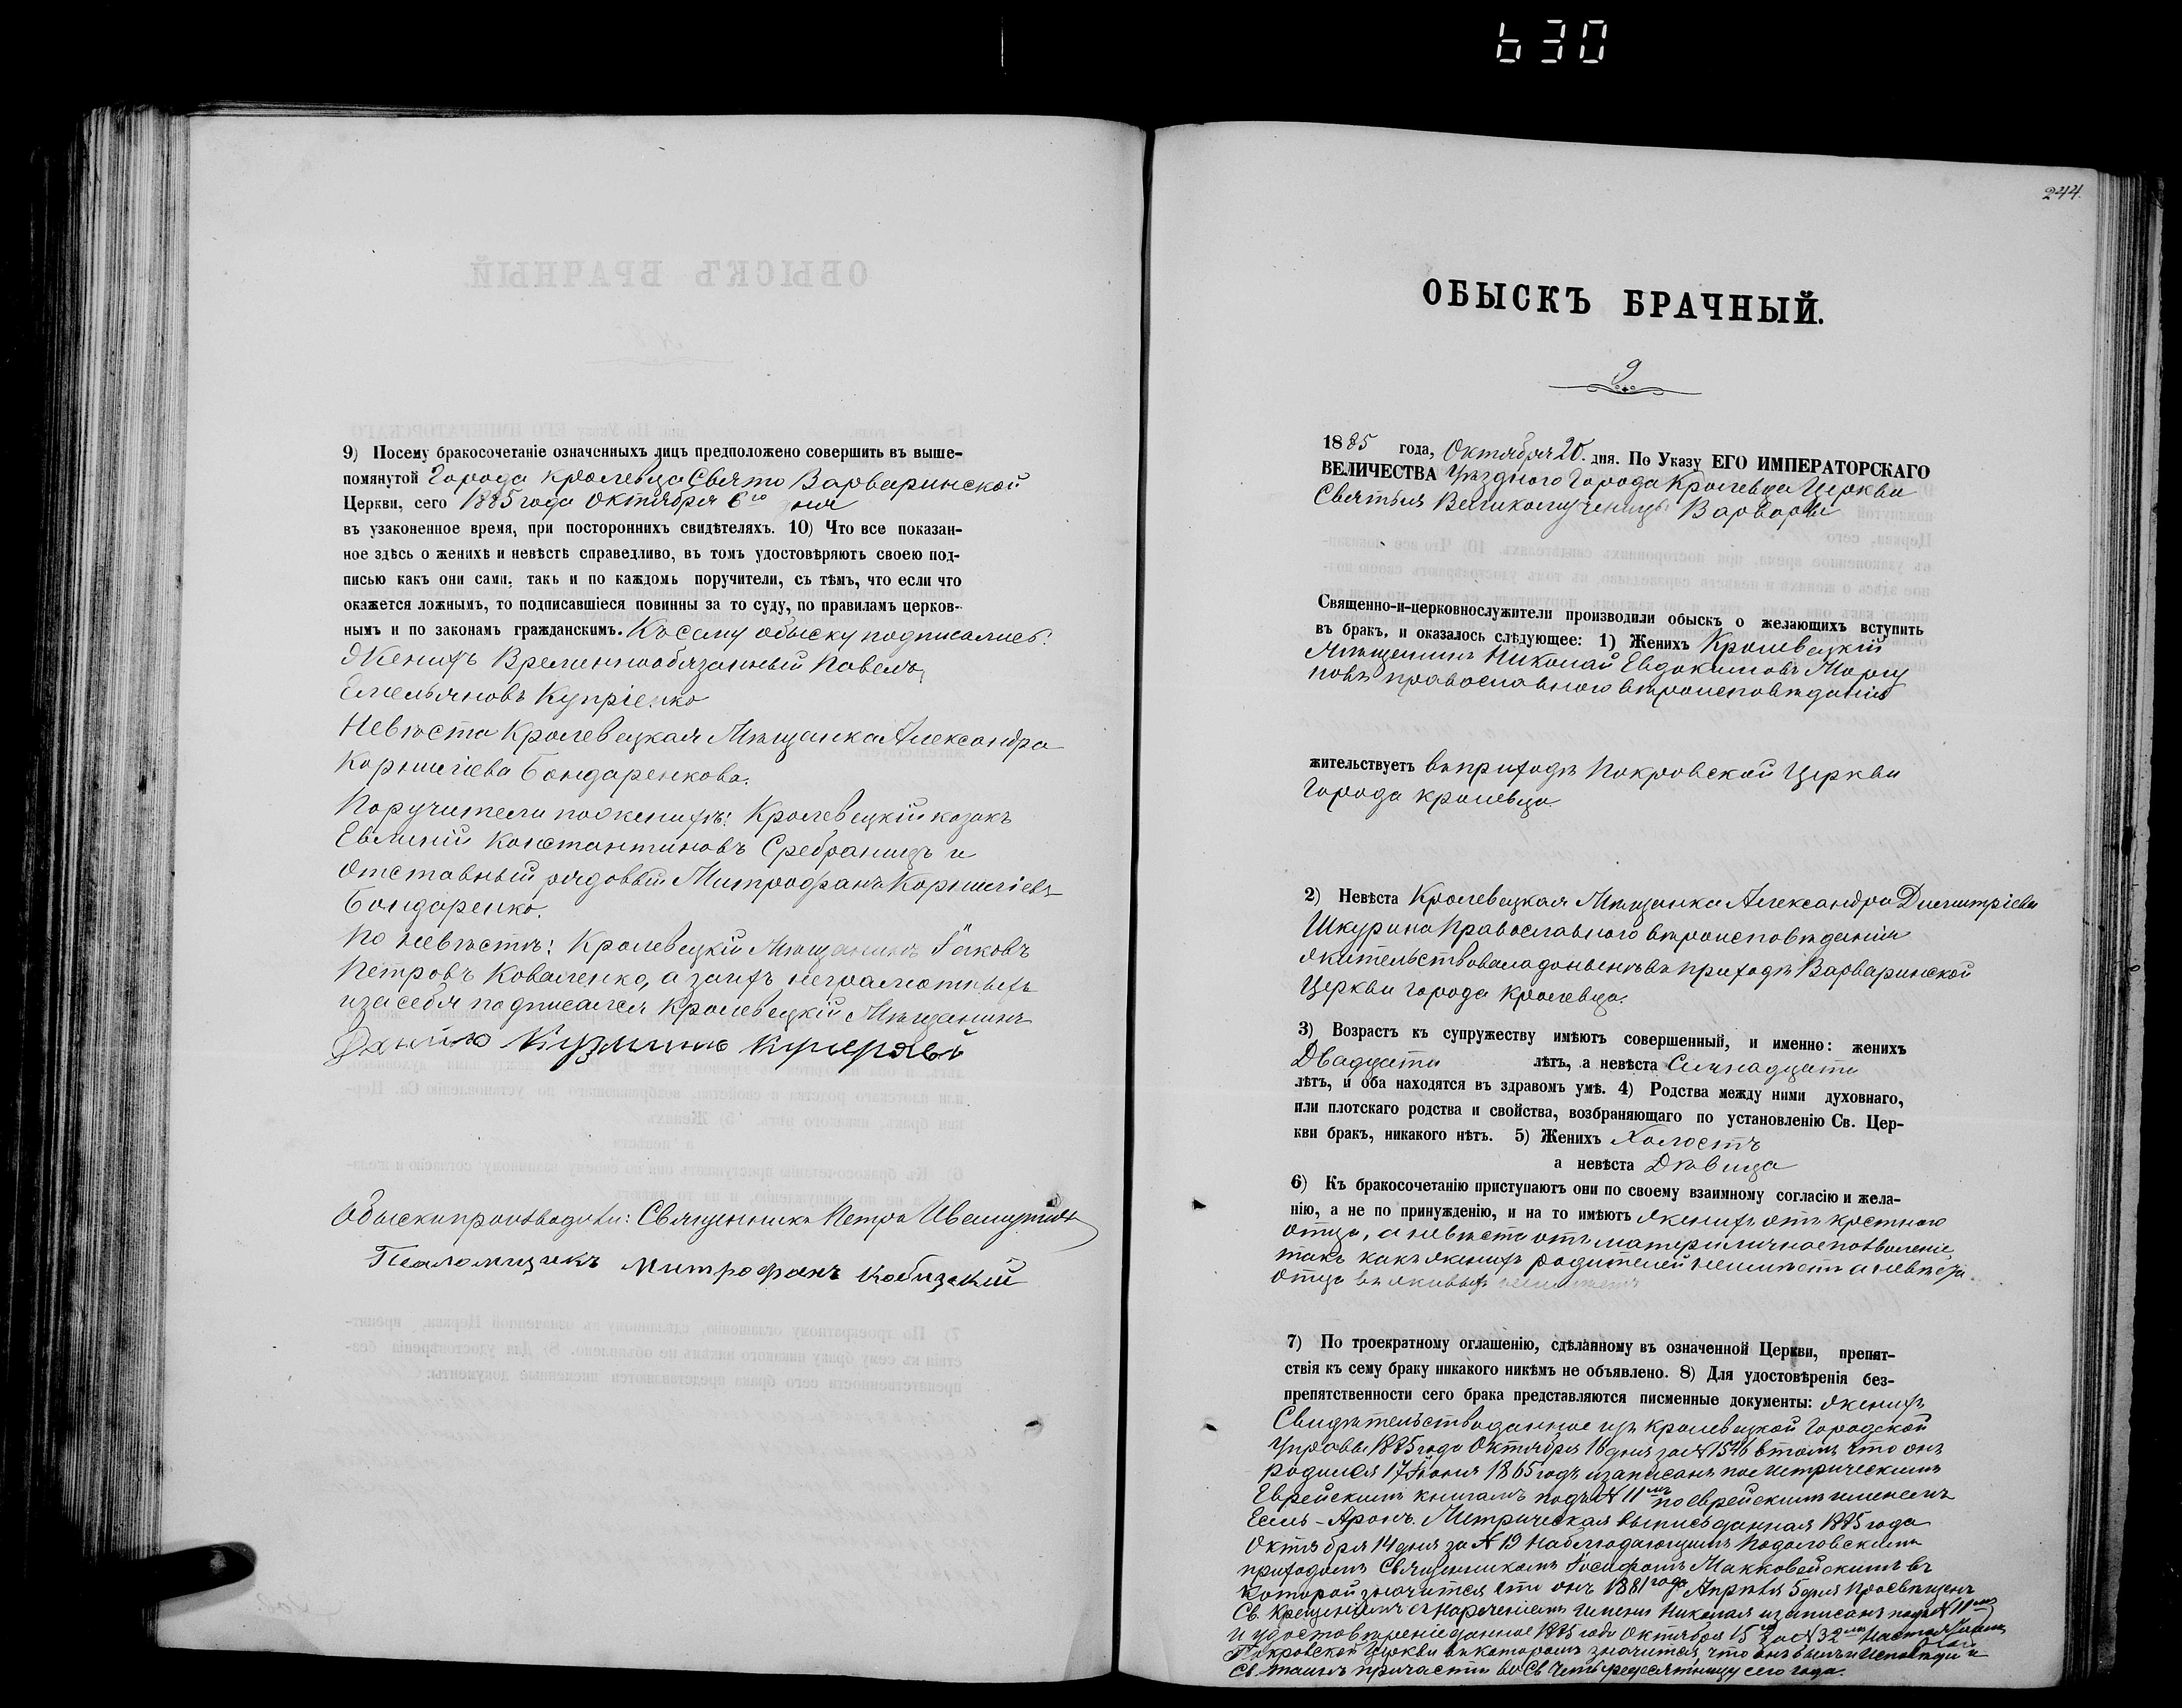 630
9) Посему бракосочетаніе означенныхъ лицъ предположено совершить въ выше-
помянутой Города Кролевца Свято Варваринской
Церкви, сего 1885 года Октября 6го дня
въ узаконенное время, при постороннихъ свидѣтеляхъ. 10) Что все показан-
ное здѣсь о женихѣ и невѣстѣ справедливо, въ томъ удостовѣряютъ своею под-
писью какъ они сами, такъ и по каждомъ поручители, съ тѣмъ, что если что
окажется ложнымъ, то подписавшіеся повинны за то суду, по правиламъ церков-
нымъ и по законамъ гражданскимъ. Къ сему обыску подписались:
Женихъ Временнообязанный Павелъ
Емельяновъ Купріенко
Невѣста Кролевецкая Мѣщанка Александра
Корниліева Бондаренкова.
Поручители по женихѣ: Кролевецкій козакъ
Константиновъ Сребраницъ и
отставный рядовый Митрофанъ Корниліевъ
Бондаренко.
По невѣстѣ: Кролевецкій Мѣщанинъ Іаковъ
Петровъ Коваленко, а за ихъ неграмотныхъ
и за себя подписался Кролевецкій Мѣщанинъ
Кузминъ
Обыскъ производили: Священникъ Петръ
Псаломщикъ Митрофанъ Кобизскій
244.
ОБЫСКЪ БРАЧНЫЙ.
9
1885 года, Октября 20. дня. По Указу ЕГО ИМПЕРАТОРСКАГО
ВЕЛИЧЕСТВА Уѣзднаго Города Кролевца Церкви
Святыя Великомученицы Варвары
Священно-и-церковнослужители производили обыскъ о желающихъ вступить
въ бракъ, и оказалось слѣдующее: 1) Женихъ Кролевецкій
Мѣщанинъ Николай Евдокимовъ Моргу
новъ православнаго вѣроисповѣданія
жительствуетъ въ приходѣ Покровской Церкви
Города Кролевца
2) Невѣста Кролевецкая Мѣщанка Александра Димитріева
Шкурина Православнаго вѣроисповѣданія
жительствовала донынѣ въ приходѣ Варваринской
Церкви города Кролевца.
3) Возрастъ къ супружеству имѣютъ совершенный, и именно: женихъ
Двадцати лѣтъ, а невѣста Семнадцати
лѣтъ, и оба находятся въ здравомъ умѣ. 4) Родства между ними духовнаго,
или плотскаго родства и свойства, возбраняющаго по установленію Св. Цер-
кви бракъ, никакого нѣтъ. 5) Женихъ Холостъ
а невѣста Дѣвица
6) Къ бракосочетанію приступаютъ они по своему взаимному согласію и жела-
нію, а не по принужденію, и на то имѣютъ женихъ отъ крестнаго
отца, а невѣста отъ матери личное позволеніе,
такъ какъ женихъ родителей неимѣетъ а невѣста
отца въ живыхъ неимѣетъ
7) По троекратному оглашенію, сдѣланному въ означенной Церкви, препят-
ствія къ сему браку никакого никѣмъ не объявлено. 8) Для удостовѣренія без-
препятственности сего брака представляются писменные документы: женихъ
Свидѣтельство данное изъ Кролевецкой Городской
Управы 1885 года Октября 16 дня за № 1546 въ томъ что онъ
родился 17 Іюня 1865 годъ и записанъ по метрическимъ
Еврейскимъ книгамъ подъ № 11мъ по еврейскимъ именемъ
Есель-Аронъ. Метрическая выпись данная 1885 года
Октября 14 дня за № 19 наблюдающимъ Подоловскимъ
приходомъ Священникомъ Іосифомъ Маккавейскимъ въ
которой значится что онъ 1881 года Апрѣля 5 дня просвѣщенъ
Св. Крещеніемъ съ нареченіемъ имени Николая и записанъ подъ № 11мъ
и удостовѣреніе данное 1885 года Октября 15 за № 32мъ
Покровской Церкви въ которомъ значится, что онъ былъ у Исповѣди и
Св. таинъ причастія во Св. Четыредесятницу сего года.